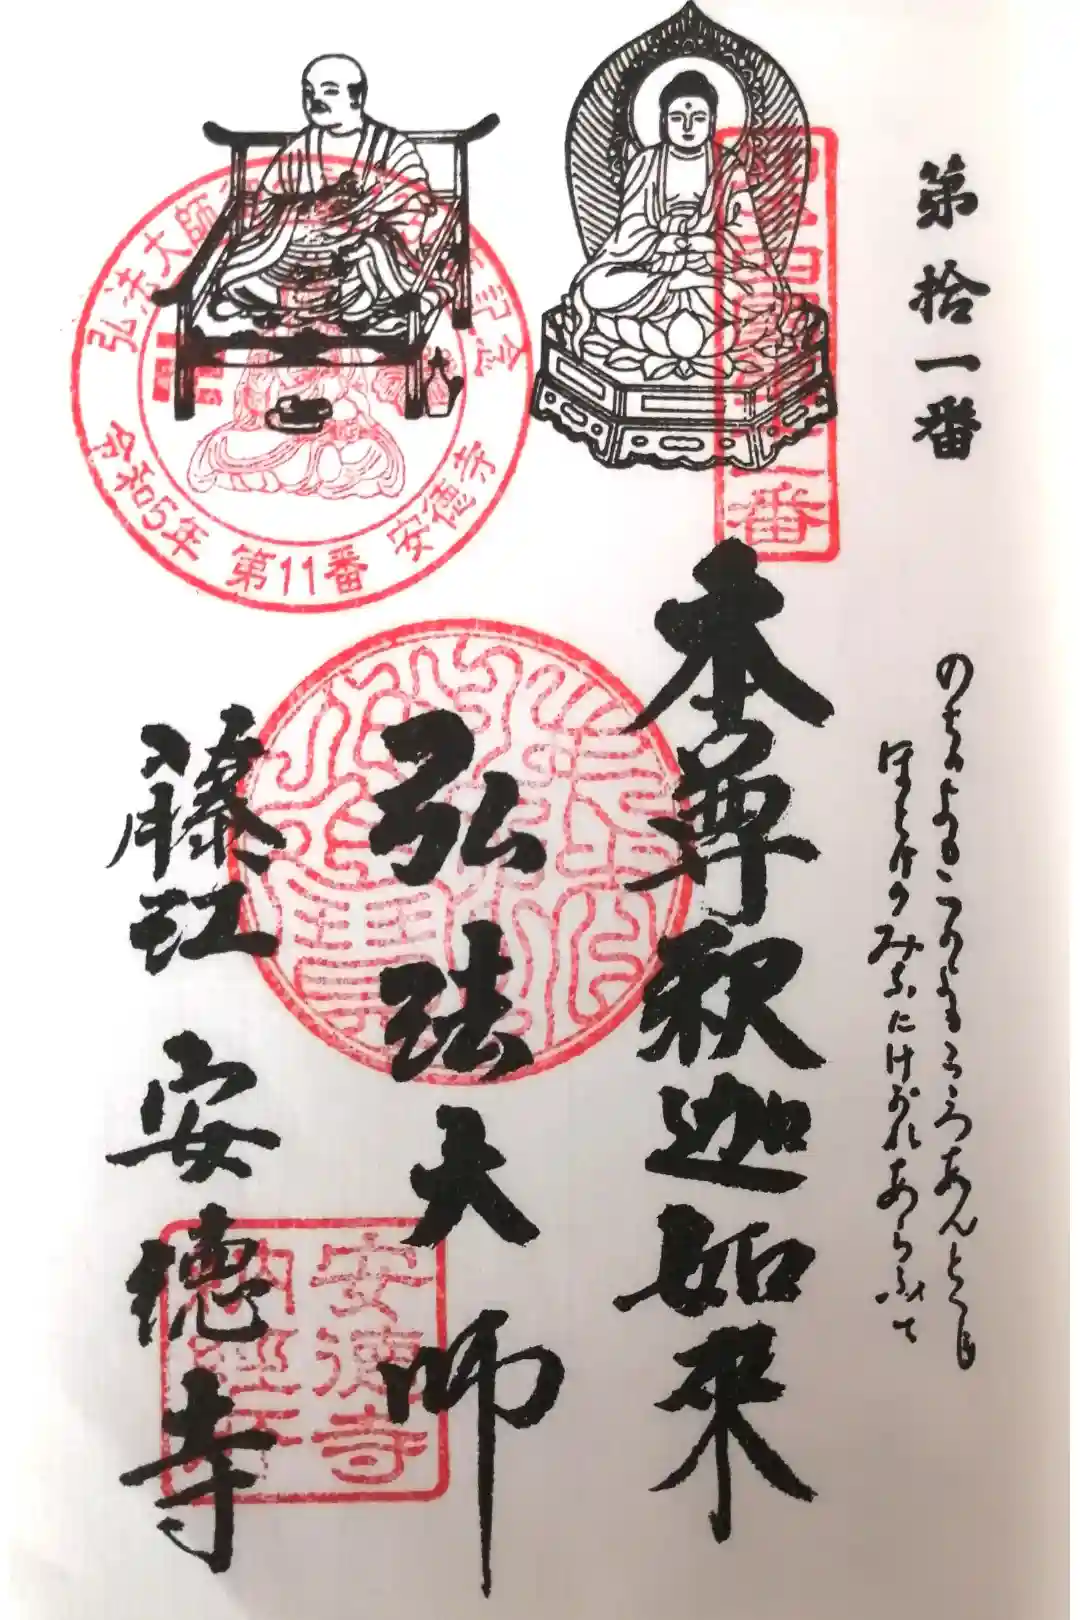 第拾一番
のちよもこのよもこゝろあんとく
ほとけのみ けがれあらふて
一番
本尊釈迦如來
弘法大師
藤江 安徳寺
弘法大師
令和5年 第11番 安徳寺
安徳寺
納経所